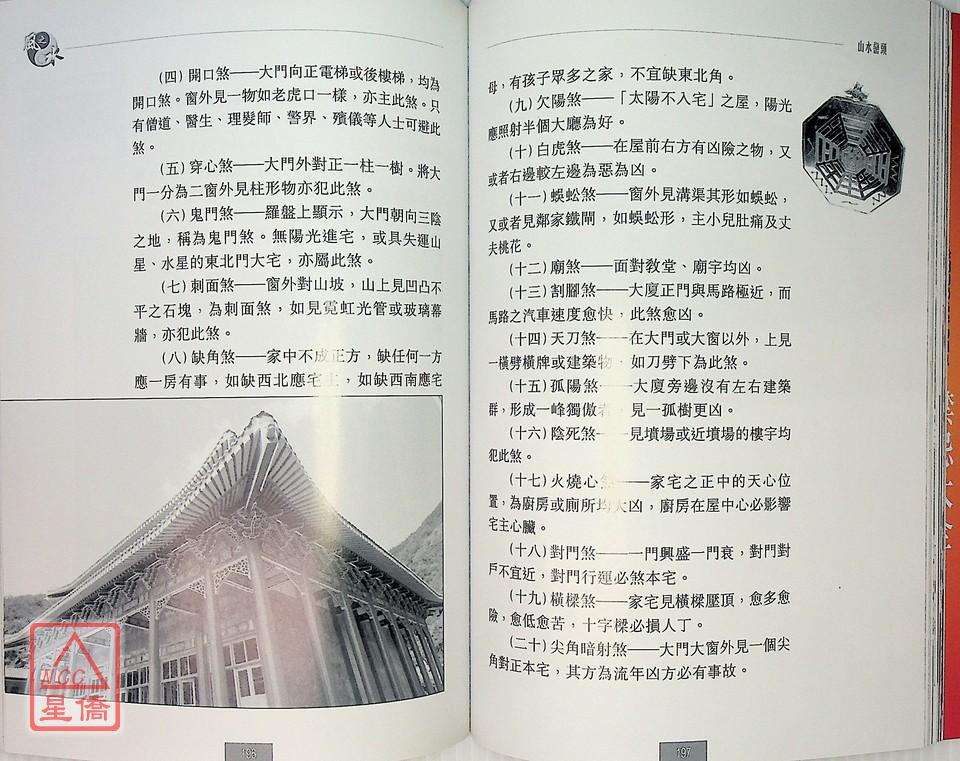 風之水
(四) 開口煞——大門向正電梯或後樓梯，均為
開口煞。窗外見一物如老虎口一樣，亦主此煞。只
有僧道、醫生、理髮師、警界、殯儀等人士可避此
煞。
(五) 穿心煞——大門外對正一柱一樹。將大
門一分為二窗外見柱形物亦犯此煞。
(六) 鬼門煞——羅盤上顯示，大門朝向三陰
之地，稱為鬼門煞。無陽光進宅，或具失運山
星、水星的東北門大宅，亦屬此煞。
(七) 刺面煞——窗外對山坡，山上見凹凸不
平之石塊，為刺面煞，如見霓虹光管或玻璃幕
牆，亦犯此煞。
(八) 缺角煞——家中不成正方，缺任何一方
應一房有事，如缺西北應宅主，如缺西南應宅
NCC
星僑
196
山水巒頭
母，有孩子眾多之家，不宜缺東北角。
(九) 欠陽煞——「太陽不入宅」之屋，陽光
應照射半個大廳為好。
(十) 白虎煞——在屋前右方有凶險之物，又
或者右邊較左邊為惡為凶。
(十一) 蜈蚣煞——窗外見溝渠其形如蜈蚣，
又或者見鄰家鐵閘，如蜈蚣形，主小兒肚痛及丈
夫桃花。
(十二) 廟煞——面對教堂、廟宇均凶。
(十三) 割腳煞——大廈正門與馬路極近，而
馬路之汽車速度愈快，此煞愈凶。
(十四) 天刀煞——在大門或大窗以外，上見
一橫劈橫牌或建築物，如刀劈下為此煞。
(十五) 孤陽煞——大廈旁邊沒有左右建築
群，形成一峰獨傲者，見一孤樹更凶。
(十六) 陰死煞——見墳場或近墳場的樓宇均
犯此煞。
(十七) 火燒心煞——家宅之正中的天心位
置，為廚房或廁所均大凶，廚房在屋中心必影響
宅主心臟。
(十八) 對門煞——一門興盛一門衰，對門對
戶不宜近，對門行運必煞本宅。
(十九) 橫樑煞——家宅見橫樑壓頂，愈多愈
險，愈低愈苦，十字樑必損人丁。
(二十) 尖角暗射煞——大門大窗外見一個尖
角對正本宅，其方為流年凶方必有事故。
197